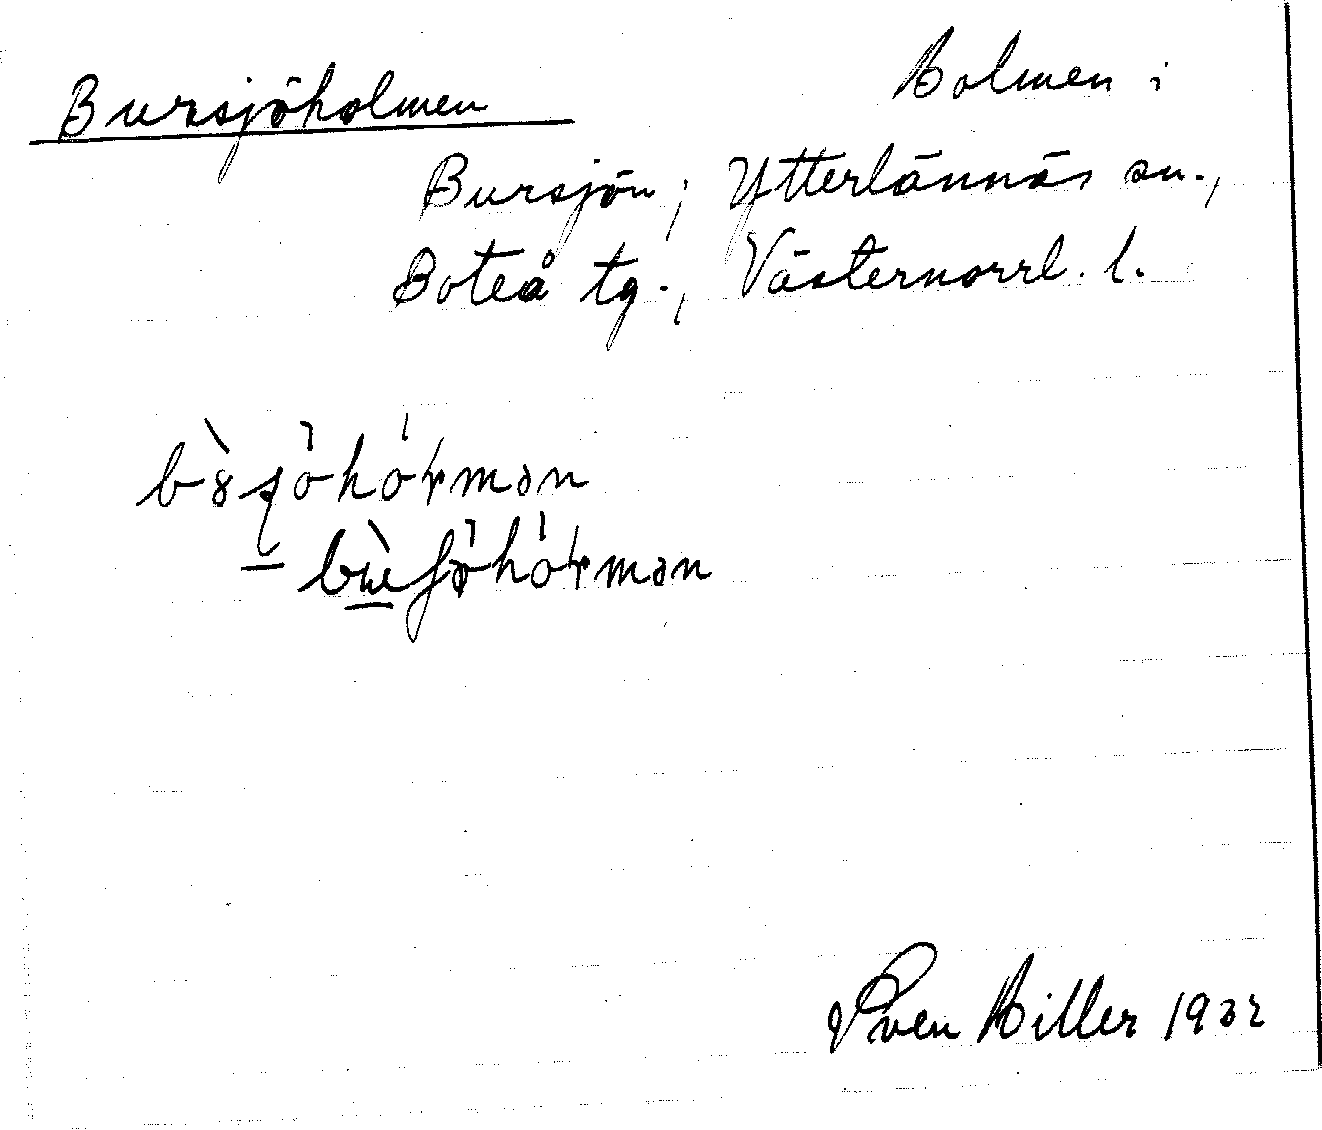 Bursjöholmen
Holmen i
Bursjön; Ytterlännäs sn.,
Boteå tg., Västernorrl. l.
Sven Hiller 1932